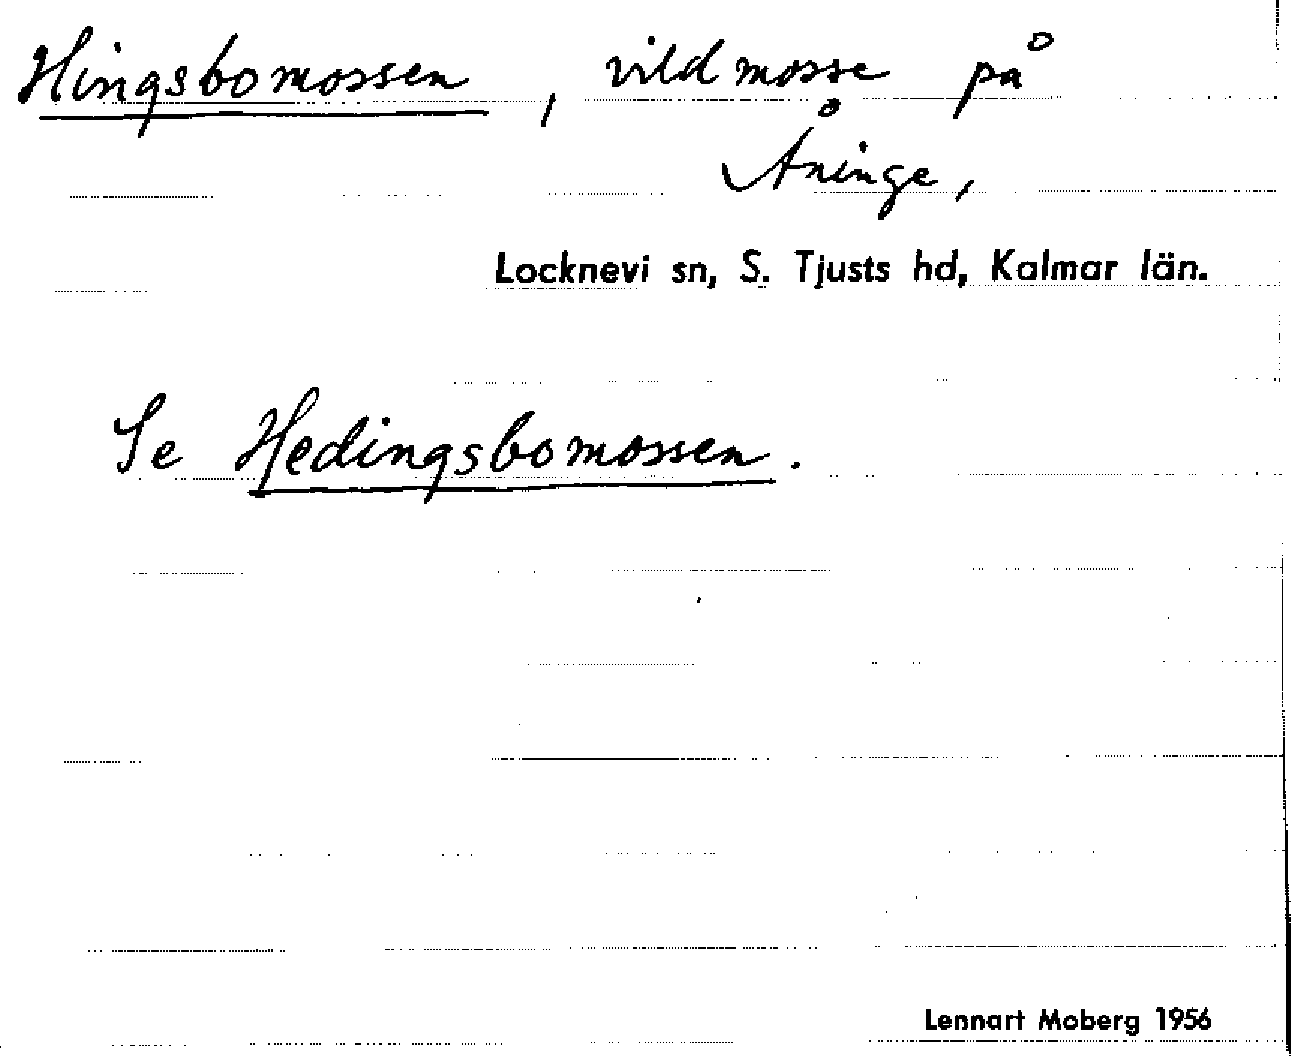 Hingsbomossen, vildmosse på
Åninge,
Locknevi sn, S. Tjusts hd, Kalmar län.
Se Hedingsbomossen.
Lennart Moberg 1956